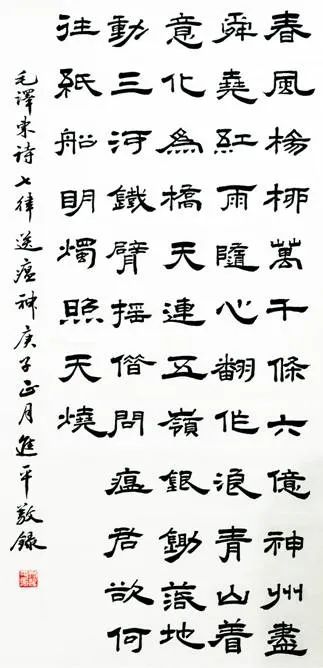 春風楊柳萬千條六億神州盡
舜堯紅雨隨心翻作浪青山着
意化為橋天連五嶺銀鋤落地
動三河鐵臂搖借問瘟君欲何
往紙船明燭照天燒
毛澤東诗七律送瘟神庚子正月進平敬録